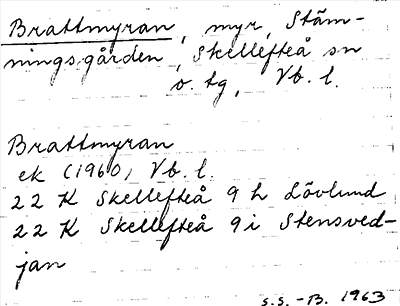 Brattmyran, myr, Stäm-
ningsgården, Skellefteå sn
o. tg, Vb. l.
Brattmyran
ek (1960) Vb. l.
22 K Skellefteå 9 h Lövlund
22 K Skellefteå 9 i Stensved-
jan
S.S. -B. 1963